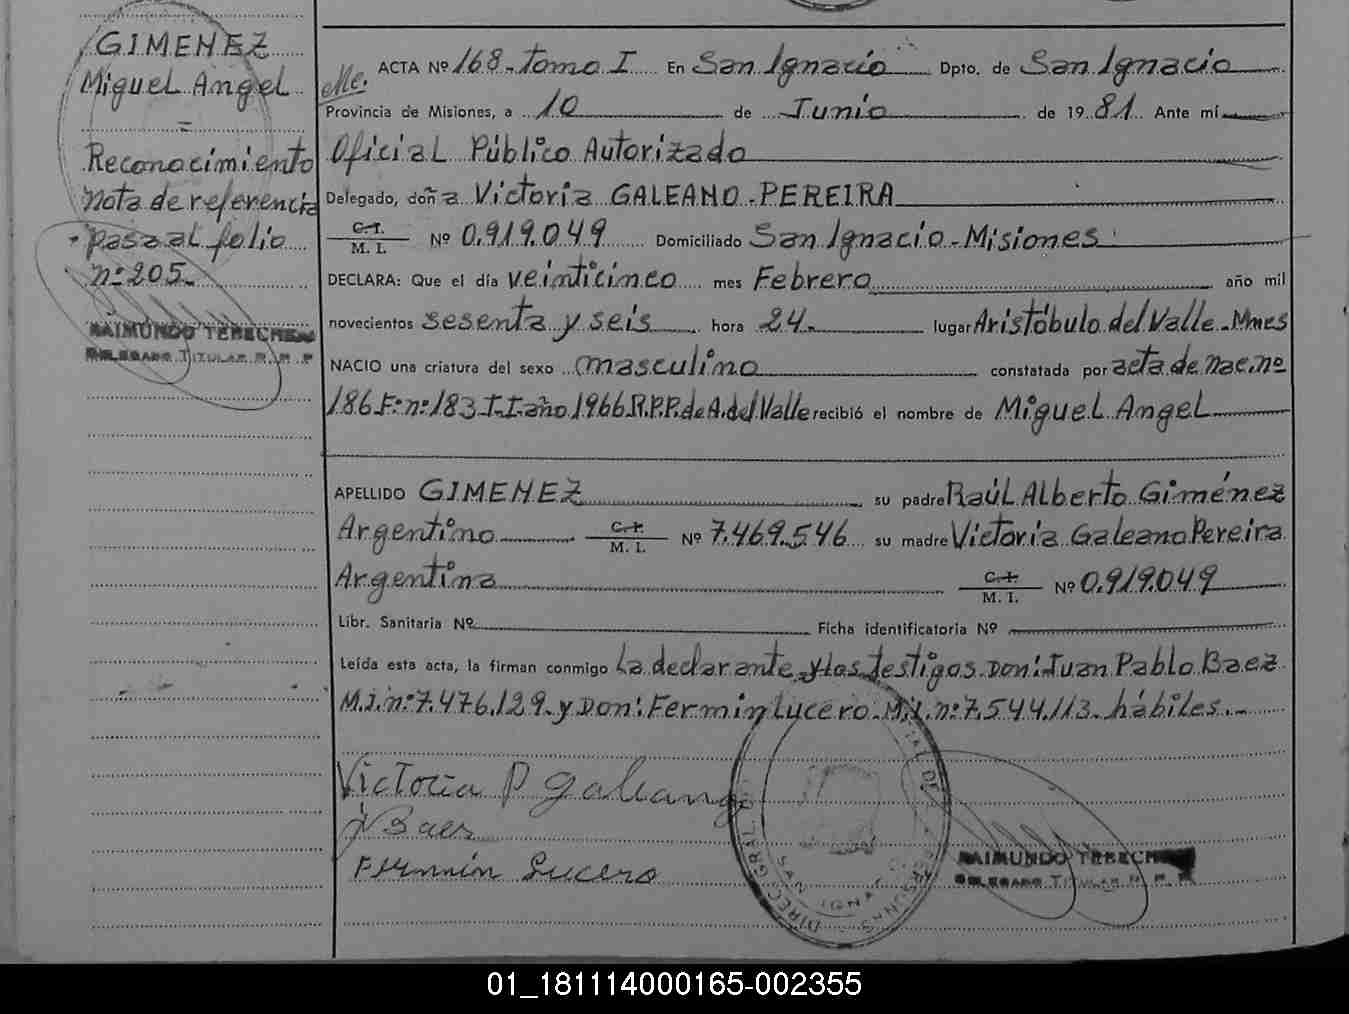 GIMENEZ
Miguel Angel
=
Reconocimiento
Nota de referencia
pasa al folio
nº 205.
RAIMUNDO TEBECHE
DELEGADO TITULAR R. P. P
ACTA Nº 168- tomo I En San Ignacio Dpto. de San Ignacio
Provincia de Misiones, a 10 de Junio de 1981 Ante mí
Oficial Público Autorizado
Delegado, doña Victoria GALEANO-PEREIRA
C.I. M. I. Nº 0.919.049 Domiciliado San Ignacio-Misiones
DECLARA: Que el día veinticinco mes Febrero año mil
novecientos sesenta y seis hora 24.- lugar Aristóbulo del Valle-Mnes
NACIO una criatura del sexo masculino constatada por acta de nac.nº
186 Fº nº 183 T-I-año 1966 R.P.P. de A. del Valle recibió el nombre de Miguel Angel
APELLIDO GIMENEZ su padre Raúl Alberto Giménez
Argentino C.I. M. I. Nº 7.469.546 su madre Victoria Galeano Pereira
Argentina C.I. M. I. Nº 0.919.049
Libr. Sanitaria Nº Ficha identificatoria Nº
Leída esta acta, la firman conmigo La declarante y los testigos Don: Juan Pablo Baez
M.I. nº 7.476.129- y Don: Fermin Lucero- M.I. nº 7.544.113- hábiles.-
Victoria P Galeano
J Baes
Fermín Lucero
DIREC. GRAL. DE PERSONAS
SAN IGNACIO
RAIMUNDO TEBECHE
DELEGADO TITULAR R. P. P
01_181114000165-002355